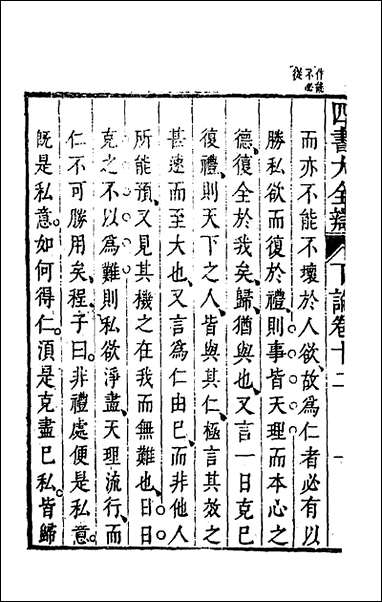 四書大全辯 下論卷十二 一
作不從必能
而亦不能不壞於人欲故為仁者必有以
勝私欲而復於禮則事皆天理而本心之
德復全於我矣歸猶與也又言一日克己
復禮則天下之人皆與其仁極言其效之
甚速而至大也又言為仁由己而非他人
所能預又見其機之在我而無難也日日
克之不以為難則私欲淨盡天理流行而
仁不可勝用矣程子曰非禮處便是私意
既是私意如何得仁須是克盡己私皆歸